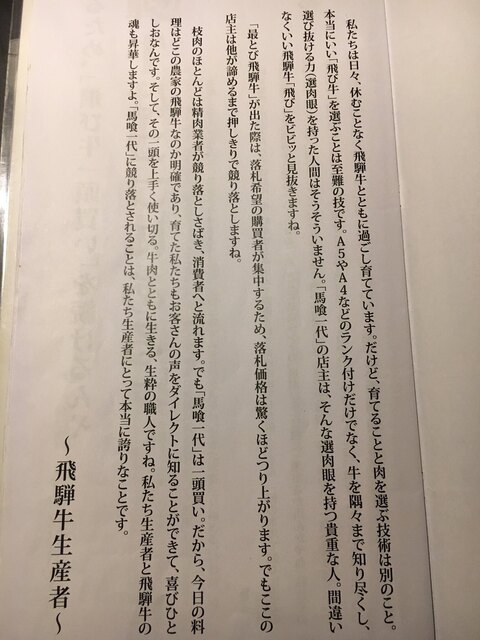 私たちは日々、休むことなく飛騨牛とともに過ごし育てています。だけど、育てることと肉を選ぶ技術は別のこと。
本当にいい「飛び牛」を選ぶことは至難の技です。A5やA4などのランク付けだけでなく、牛を隅々まで知り尽くし、
選び抜ける力(選肉眼)を持った人間はそうそういません。「馬喰一代」の店主は、そんな選肉眼を持つ貴重な人。間違い
なくいい飛騨牛「飛び」をビビッと見抜きますね。
「最とび飛騨牛」が出た際は、落札希望の購買者が集中するため、落札価格は驚くほどつり上がります。でもここの
店主は他が諦めるまで押しきりで競り落としますね。
枝肉のほとんどは精肉業者が競り落としさばき、消費者へと流れます。でも「馬喰一代」は一頭買い。だから、今日の料
理はどこの農家の飛騨牛なのか明確であり、育てた私たちもお客さんの声をダイレクトに知ることができて、喜びひと
しおなんです。そして、その一頭を上手く使い切る。牛肉とともに生きる、生粋の職人ですね。私たち生産者と飛騨牛の
魂も昇華しますよ。「馬喰一代」に競り落とされることは、私たち生産者にとって本当に誇りなことです。
〜飛騨牛生産者〜